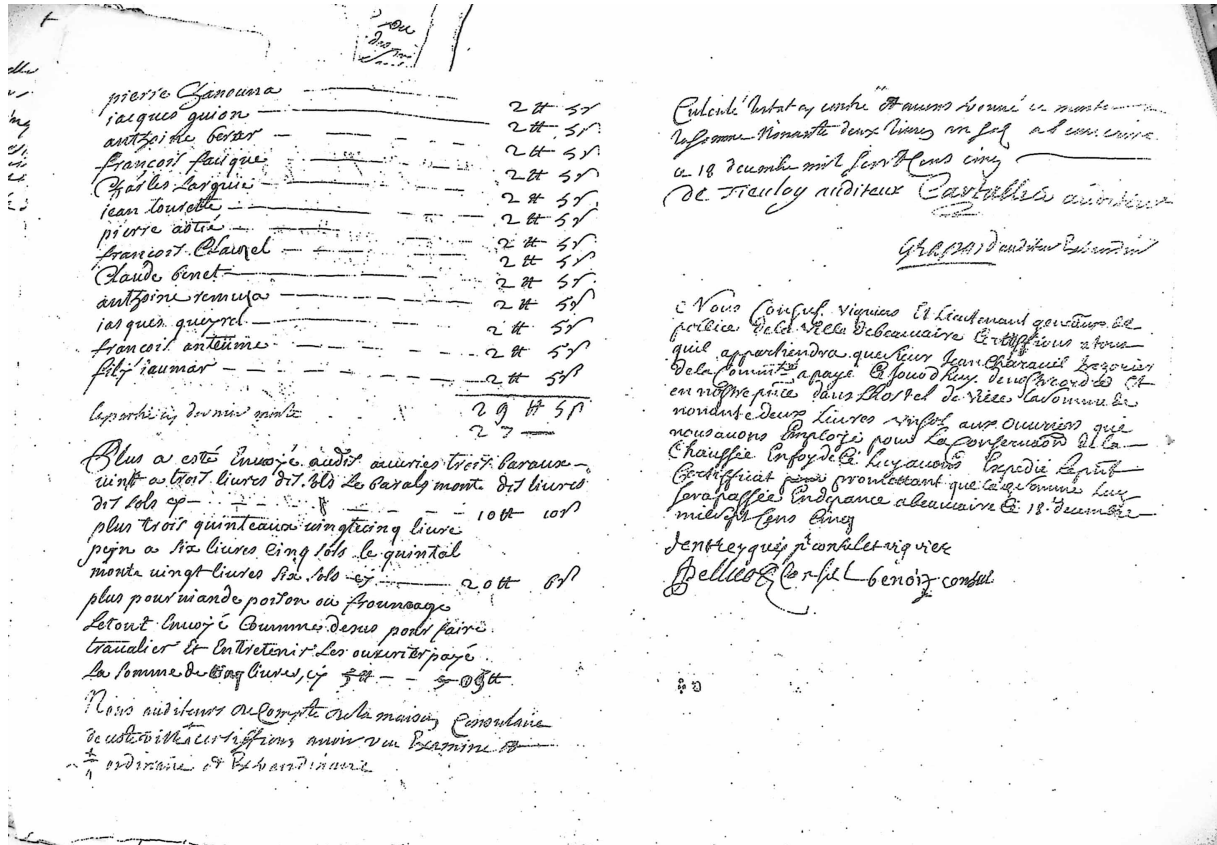 pierre Chanouna
jacques guion 2 ₶ 5 s
anthoine berar 2 ₶ 5 s
françois faisque 2 ₶ 5 s
Charles Larguie 2 ₶ 5 s
jean tourette 2 ₶ 5 s
pierre astié 2 ₶ 5 s
françois Clauzel 2 ₶ 5 s
Claude benet 2 ₶ 5 s
anthoine remusa 2 ₶ 5 s
jacques queyrel 2 ₶ 5 s
francois anteume 2 ₶ 5 s
filip jaumar 2 ₶ 5 s
2 ₶ 5 s
29 ₶ 5 s
27
Plus a esté Envoyé audit ouvries trois baraux
vint a trois livres dis sols Le barals monte dis livres
dis sols cy 10 ₶ 10 s
plus trois quinteaux vingtcinq livre
pejn a six livres cinq sols le quintal
monte vingt livres six sols cy 20 ₶ 6 s
plus pour viande poison ou froumage
Le tout Envoyé Coumme desus pour faire
travalier Et Entretenir Les ouvrier payé
La somme de cinq livres, cy 5 ₶ 05 ₶
Nous auditeurs de Compte de la maison Consulaire
de ceste ville certiffions avoir veu Examine
ordinaire et Extraordinaire
Calculé l'estat cy contre et avons trouvé ce monte
la somme Nonante deux livres un sol
ce 18 decembre mil sept Cens cinq
De Tieuloy auditeur Cartallier auditeur
auditeur Extraordin
Nous Consuls viguiers Et Lieutenant generaux de
police de la ville de beaucaire Certiffions a tous
quil appartiendra que sieur Jean Charavel trezorier
de la Commté a payé Ce jourdhuy de nos ordres Et
en nostre pnce dans Lhostel de ville La somme de
nonante deux Livres un sol aux ouvriers que
nous avons Employé pour La Conservaon de la
Chaussée En foy de Ce Luy avons Expedié Le pnt
Certifficat promettant que La de somme Luy
sera passée En depance a beaucaire Ce 18e decembre
mil sept Cens Cinq
dentreygues pr consul et viguier
Consul benoiz consul